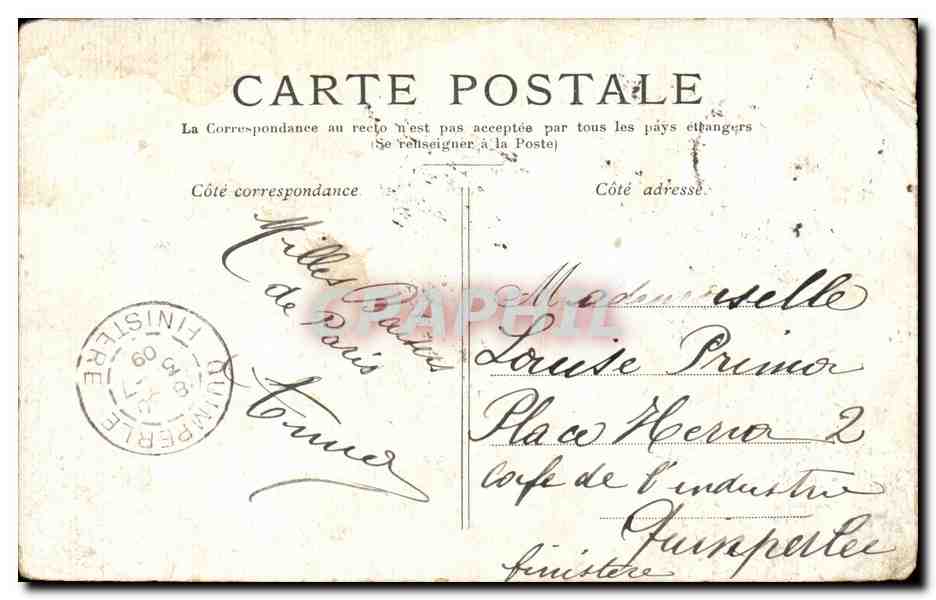 CARTE POSTALE
La Correspondance au recto n'est pas acceptée par tous les pays étrangers
(Se renseigner à la Poste)
Côté correspondance
Côté adresse
Milles Baisers
de Paris
QUIMPERLE
FINISTERE
09
CPAPHIL
Mademoiselle
Louise Prima
Place Herva 2
cafe de l'industrie
Quimperlee
finistere